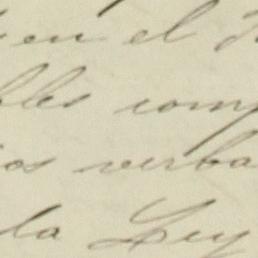 en el
bles comp
ios verba
la Ley